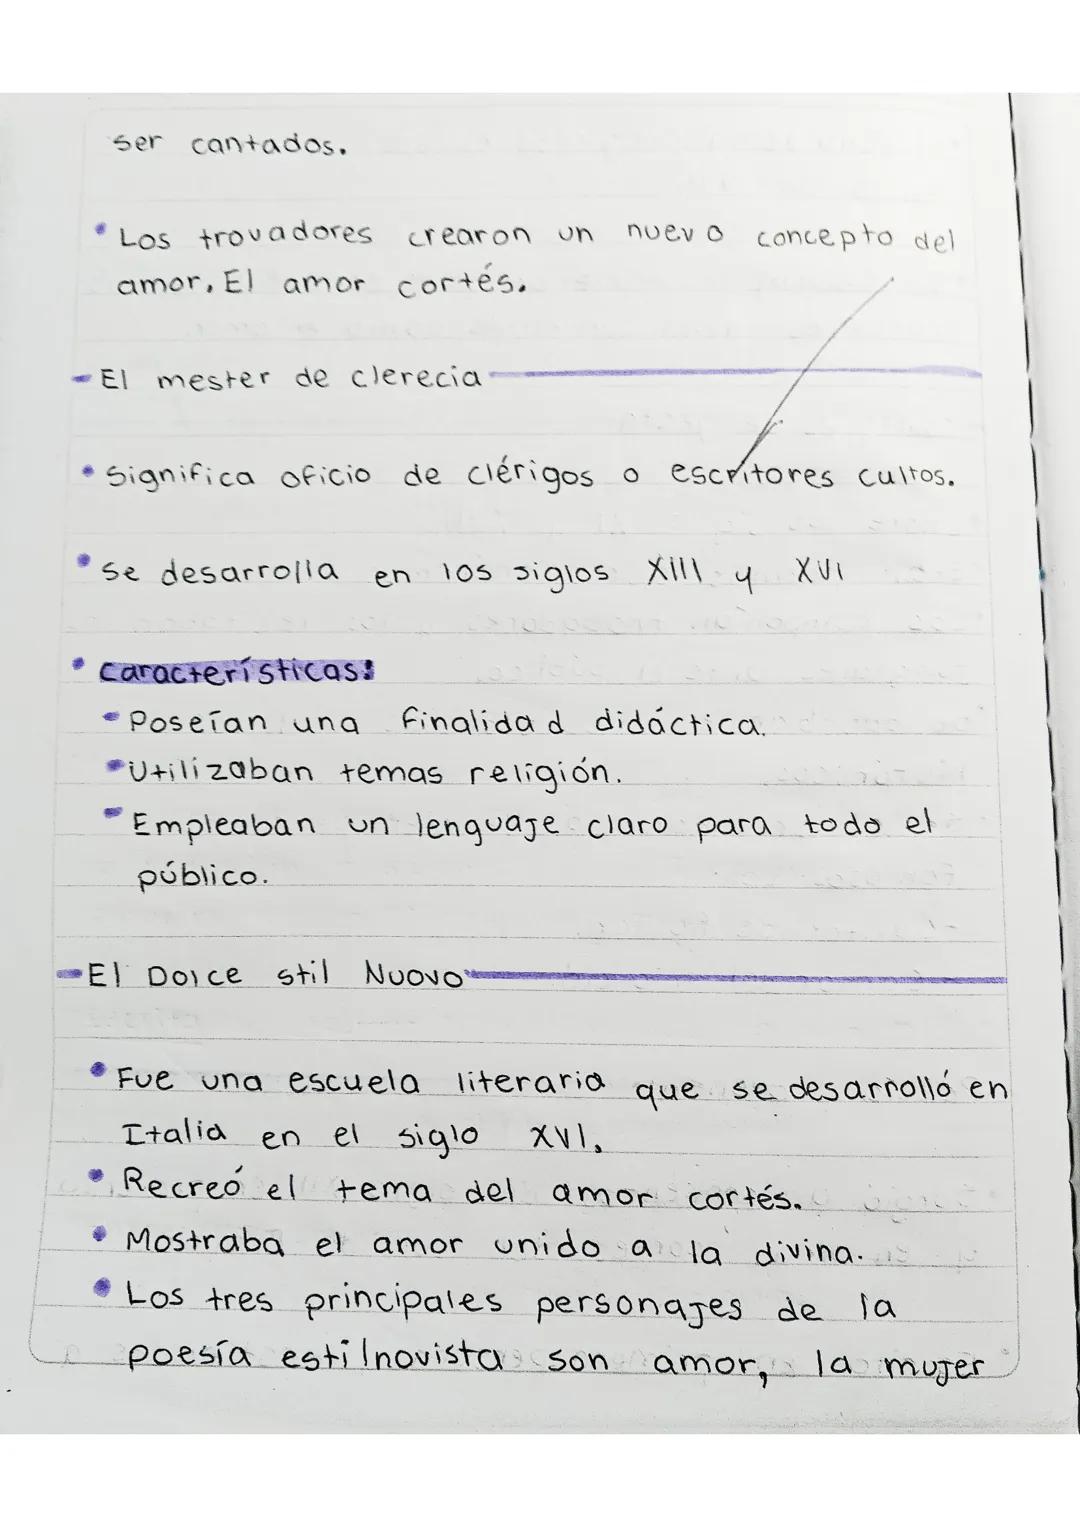 ser cantados.
• Los trovadores crearon un nuevo concepto del
amor. El amor cortés.
- El mester de clerecia
• Significa oficio de clérigos o escritores cultos.
• se desarrolla en los siglos XIII y XVI
• características:
- Poseían una finalidad didáctica.
• Utilizaban temas religión.
- Empleaban un lenguaje claro para todo el
público.
- El Dolce stil Nuovo
• Fue una escuela literaria que se desarrolló en
Italia en el siglo XVI.
• Recreó el tema del amor cortés.
• Mostraba el amor unido a la divina.
• Los tres principales personajes de la
poesía estilnovista son amor, la mujer